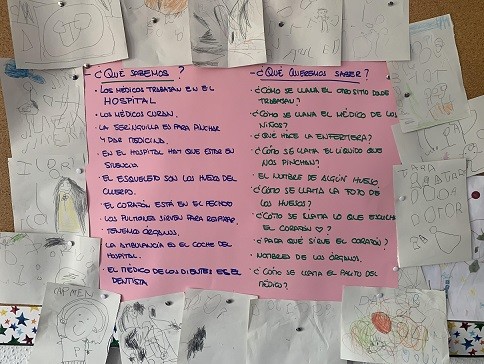 ¿QUÉ SABEMOS?
• LOS MÉDICOS TRABAJAN EN EL
HOSPITAL
• LOS MÉDICOS CURAN.
• LA SERINGUILLA ES PARA PINCHAR
Y DAR MEDICINA.
• EN EL HOSPITAL HAY QUE ESTAR EN
SILENCIO
• EL ESQUELETO SON LOS HUESOS DEL
CUERPO.
• EL CORAZÓN ESTÁ EN EL PECHO
• LOS PULMONES SIRVEN PARA RESPIRAR.
• TENEMOS ÓRGANOS.
• LA AMBULANCIA ES EL COCHE DEL
HOSPITAL.
• EL MÉDICO DE LOS DIENTES ES EL
DENTISTA
¿QUÉ QUEREMOS SABER?
• ¿CÓMO SE LLAMA EL OTRO SITIO DONDE
TRABAJAN?
• ¿CÓMO SE LLAMA EL MÉDICO DE LOS
NIÑOS?
• ¿QUÉ HACE LA ENFERMERA?
• ¿CÓMO SE LLAMA EL LÍQUIDO QUE
NOS PINCHAN?
• EL NOMBRE DE ALGÚN HUESO
• ¿CÓMO SE LLAMA LA FOTO DE
LOS HUESOS?
• ¿CÓMO SE LLAMA LO QUE ESCUCHA
EL CORAZÓN ♡?
• ¿PARA QUÉ SIRVE EL CORAZÓN?
• NOMBRES DE LOS ÓRGANOS.
• ¿CÓMO SE LLAMA EL PALITO DEL
MÉDICO?
CARMEN